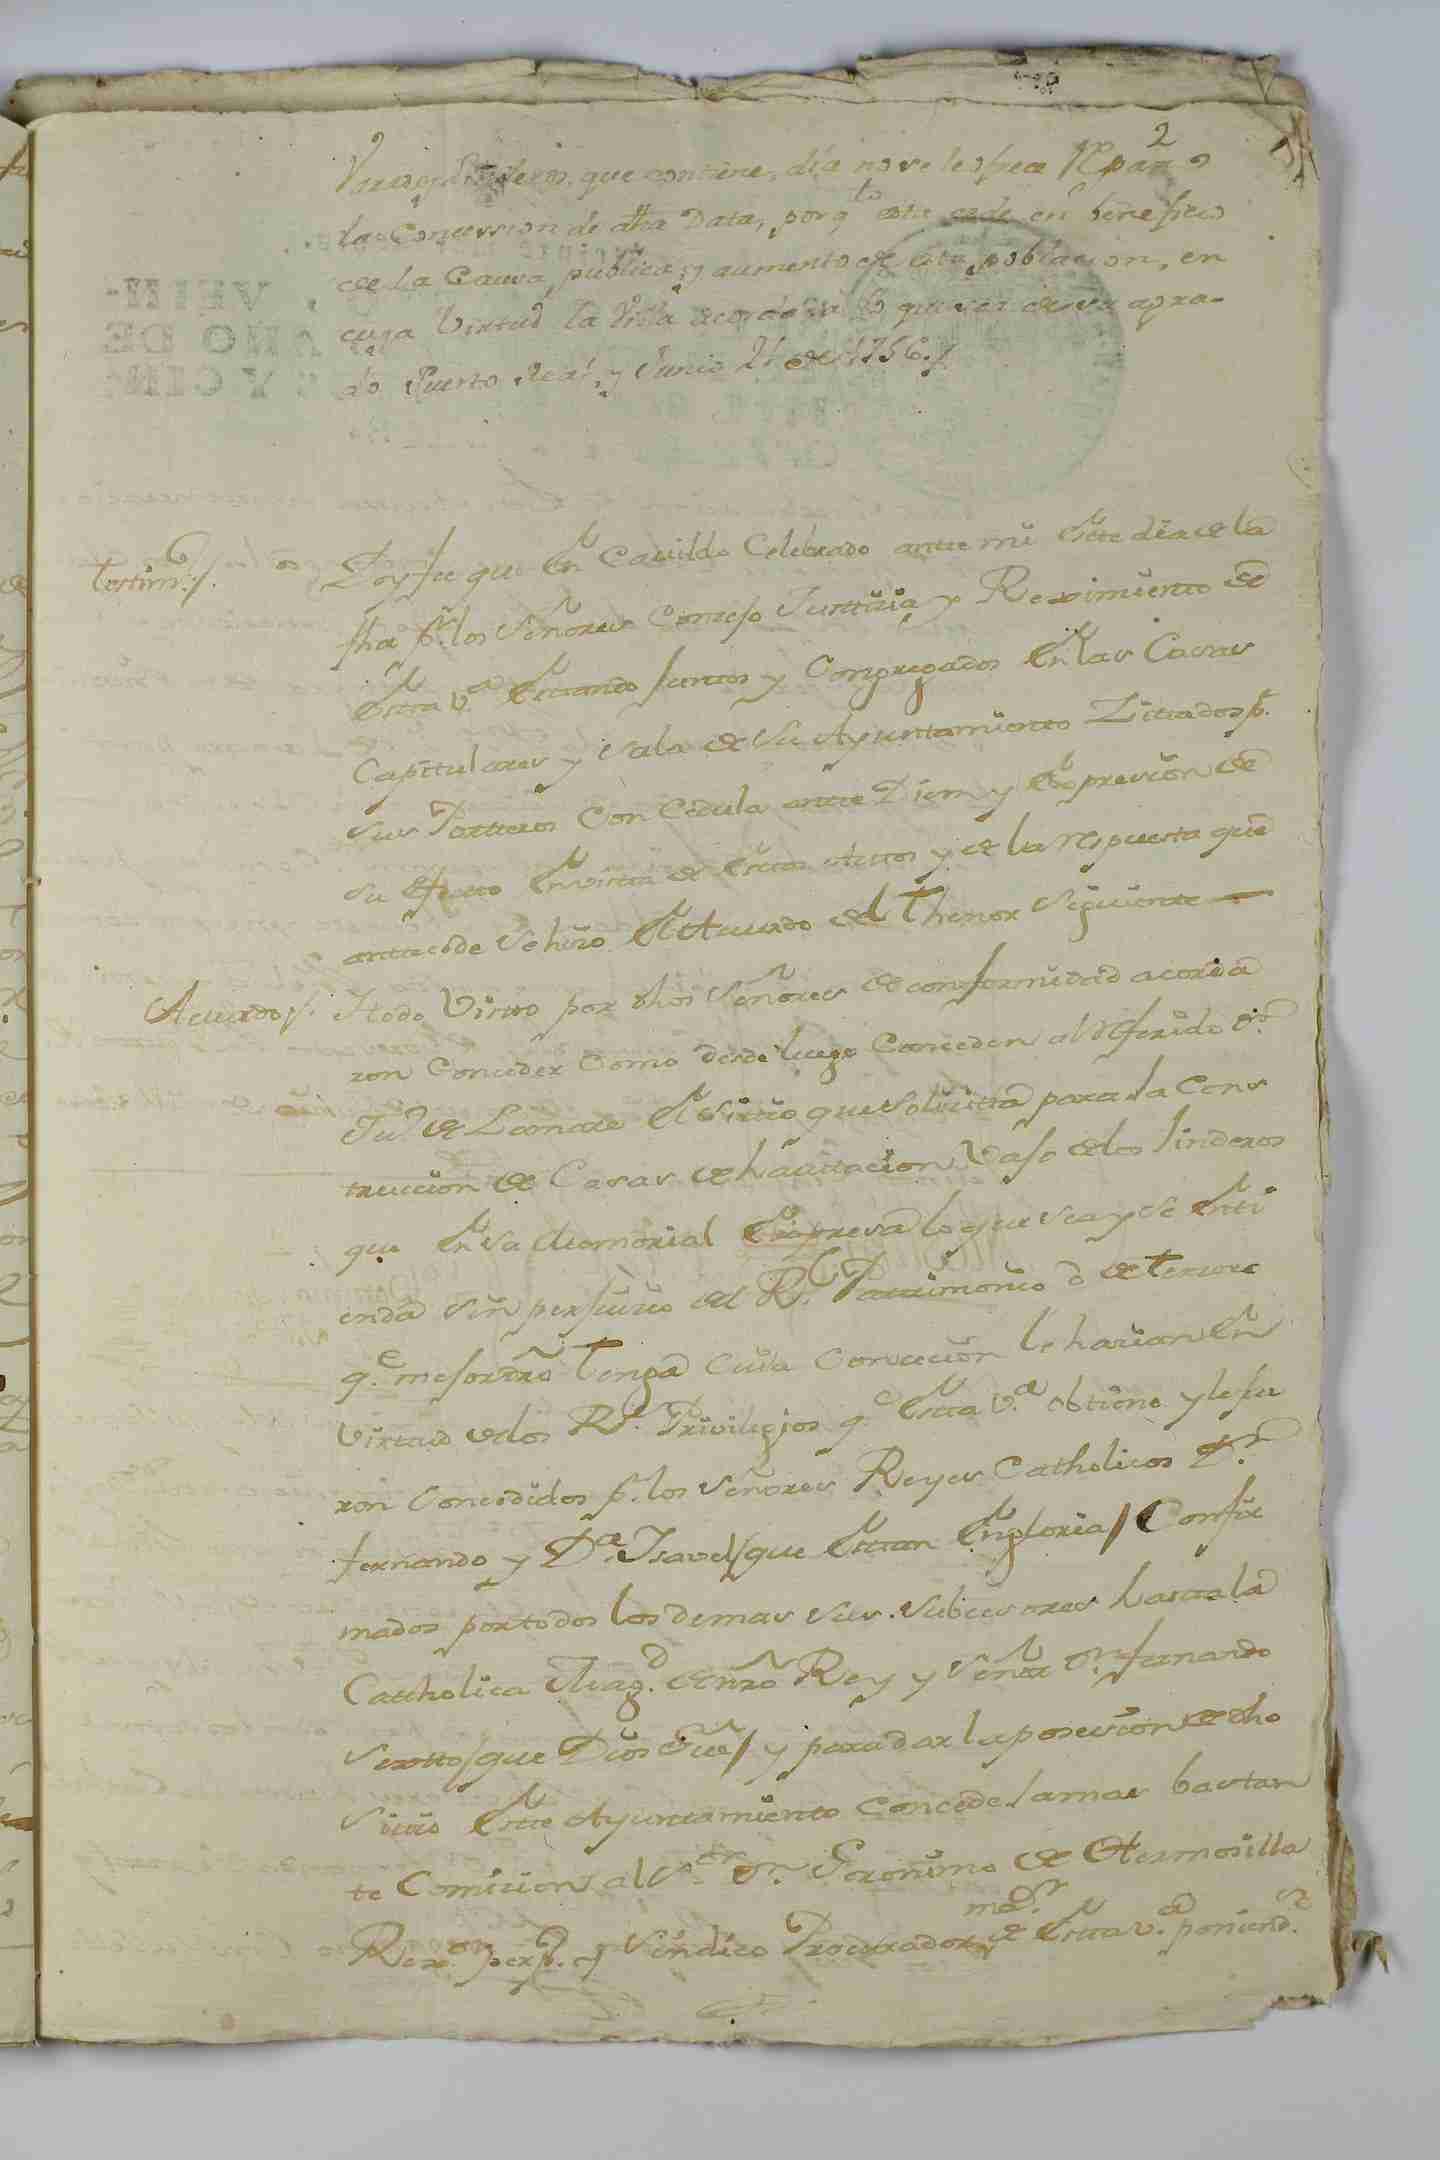 2
Varas, y linderos, que contiene, dia no se le ofrece reparo
la Concession de dha Data, porq.to esta cede en beneficio
de la Causa publica, y aumento de esta poblacion, en
cuya Virtud la Villa acordará lo que sea de su agra-
do Puerto Real, y Junio 21 de 1756.
Testim.o
Doy fee que En Cavildo Celebrado antte mi Este dia de la
fha p.r los Señores Consejo Justticia y Rexximiento de
Estta v.a Esttando Juntos y Congregados En las Casas
Capitulares y Sala de Su Ayunttamiento Zittados p.r
sus Portteros Con Cedula antte Diem y Expresion de
su Efectto En vistta de Esttos Auttos y de la respuesta que
anttecede Se hizo El Acuerdo del Thenor Siguiente
Acuerdo
Y todo Vistto por dhos Señores de conformidad acorda
ron Conceder Como desde luego Conceden al referido D.n
Ju.o de el Sittio que Solicitta para la Cons
truccion de Casas de havitacion Vajo de los linderos
que En su Memorial Expresa lo que sea y se Enti
enda Sin perjuicio del R.l Pattrimonio o de Tercero
q.e mejor dro Tenga Cuia Concecion le hacian En
virtud de los R.s Privilegios q.e Estta v.a obtiene y le fue
ron Concedidos p.r los Señores Reyes Catholicos D.n
fernando y D.a Isavel/que Esttan En gloria/Confir
mados por todos los demas sus Subcesores hasta la
Catholica Mag.d de nro Rey y Señor D.n fernando
Sextto/que Dios Gue/ y para dar la posecion de dho
Sittio Este Ayuntamiento Concede la mas bastan
te Comision al S.or D.n Geronimo de Hermosilla
Rex.or perp.o y Sindico Procurador m.or de Estta v.a poniend.e